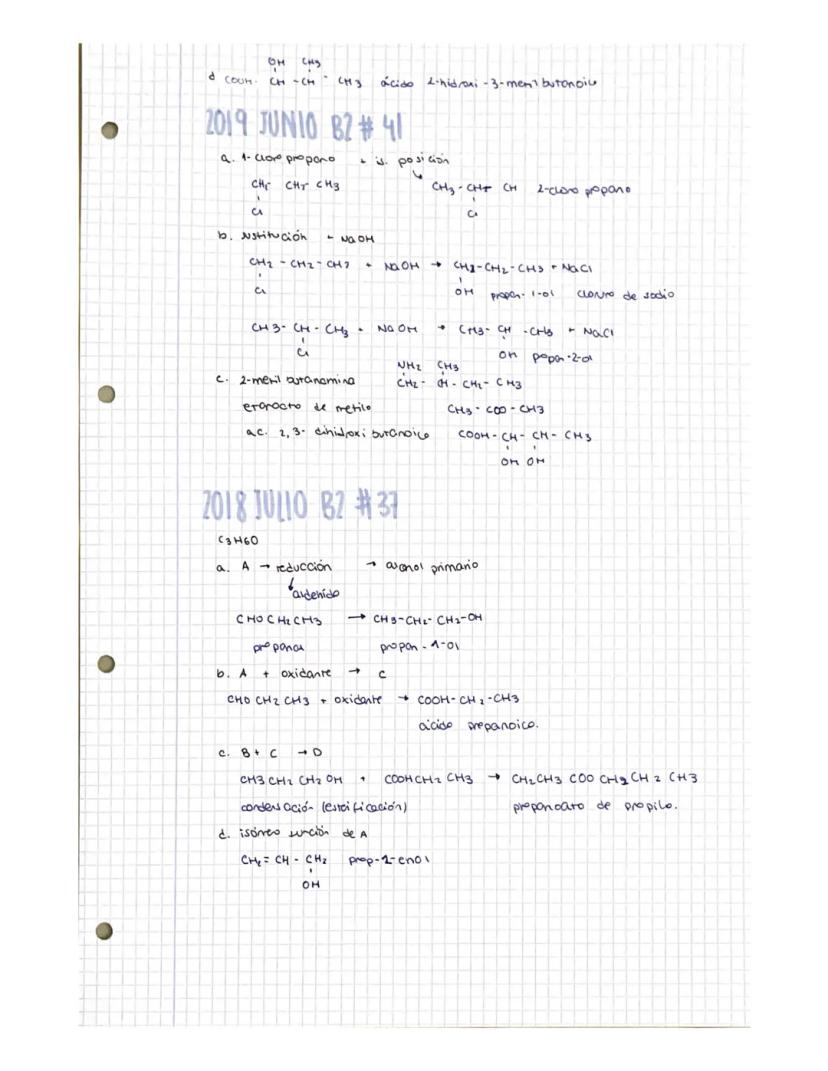 OH CH3
d COOH - CH - CH - CH3 ácido 2-hidroxi-3-metil butanoico
2019 JUNIO B2 # 41
a. 1-cloro propano + is. posición
CH2 CH2 CH3 CH3 - CH2 CH 2-cloro propano
Cl Cl
b. sustitución + NaOH
CH2 - CH2 - CH3 + NaOH → CH2-CH2-CH3 + NaCl
Cl OH propan-1-ol cloruro de sodio
CH3 - CH - CH3 + NaOH → CH3 - CH - CH3 + NaCl
Cl OH propan-2-ol
NH2 CH3
c. 2-metil butanamina CH2 - CH - CH2 - CH3
etanoato de metilo CH3 - COO - CH3
ac. 2,3- dihidroxi butanoico COOH - CH - CH - CH3
OH OH
2018 JULIO B2 #37
C3H6O
a. A → reducción → alcohol primario
aldehído
CHO CH2 CH3 → CH3-CH2-CH2-OH
propanal propan-1-ol
b. A + oxidante → C
CHO CH2 CH3 + oxidante → COOH-CH2-CH3
ácido propanoico.
c. B + C → D
CH3 CH2 CH2 OH + COOH CH2 CH3 → CH2CH3 COO CH2 CH2 CH3
condensación (esterificación) propanoato de propilo.
d. isómero función de A
CH2 = CH - CH2 prop-2-enol
OH